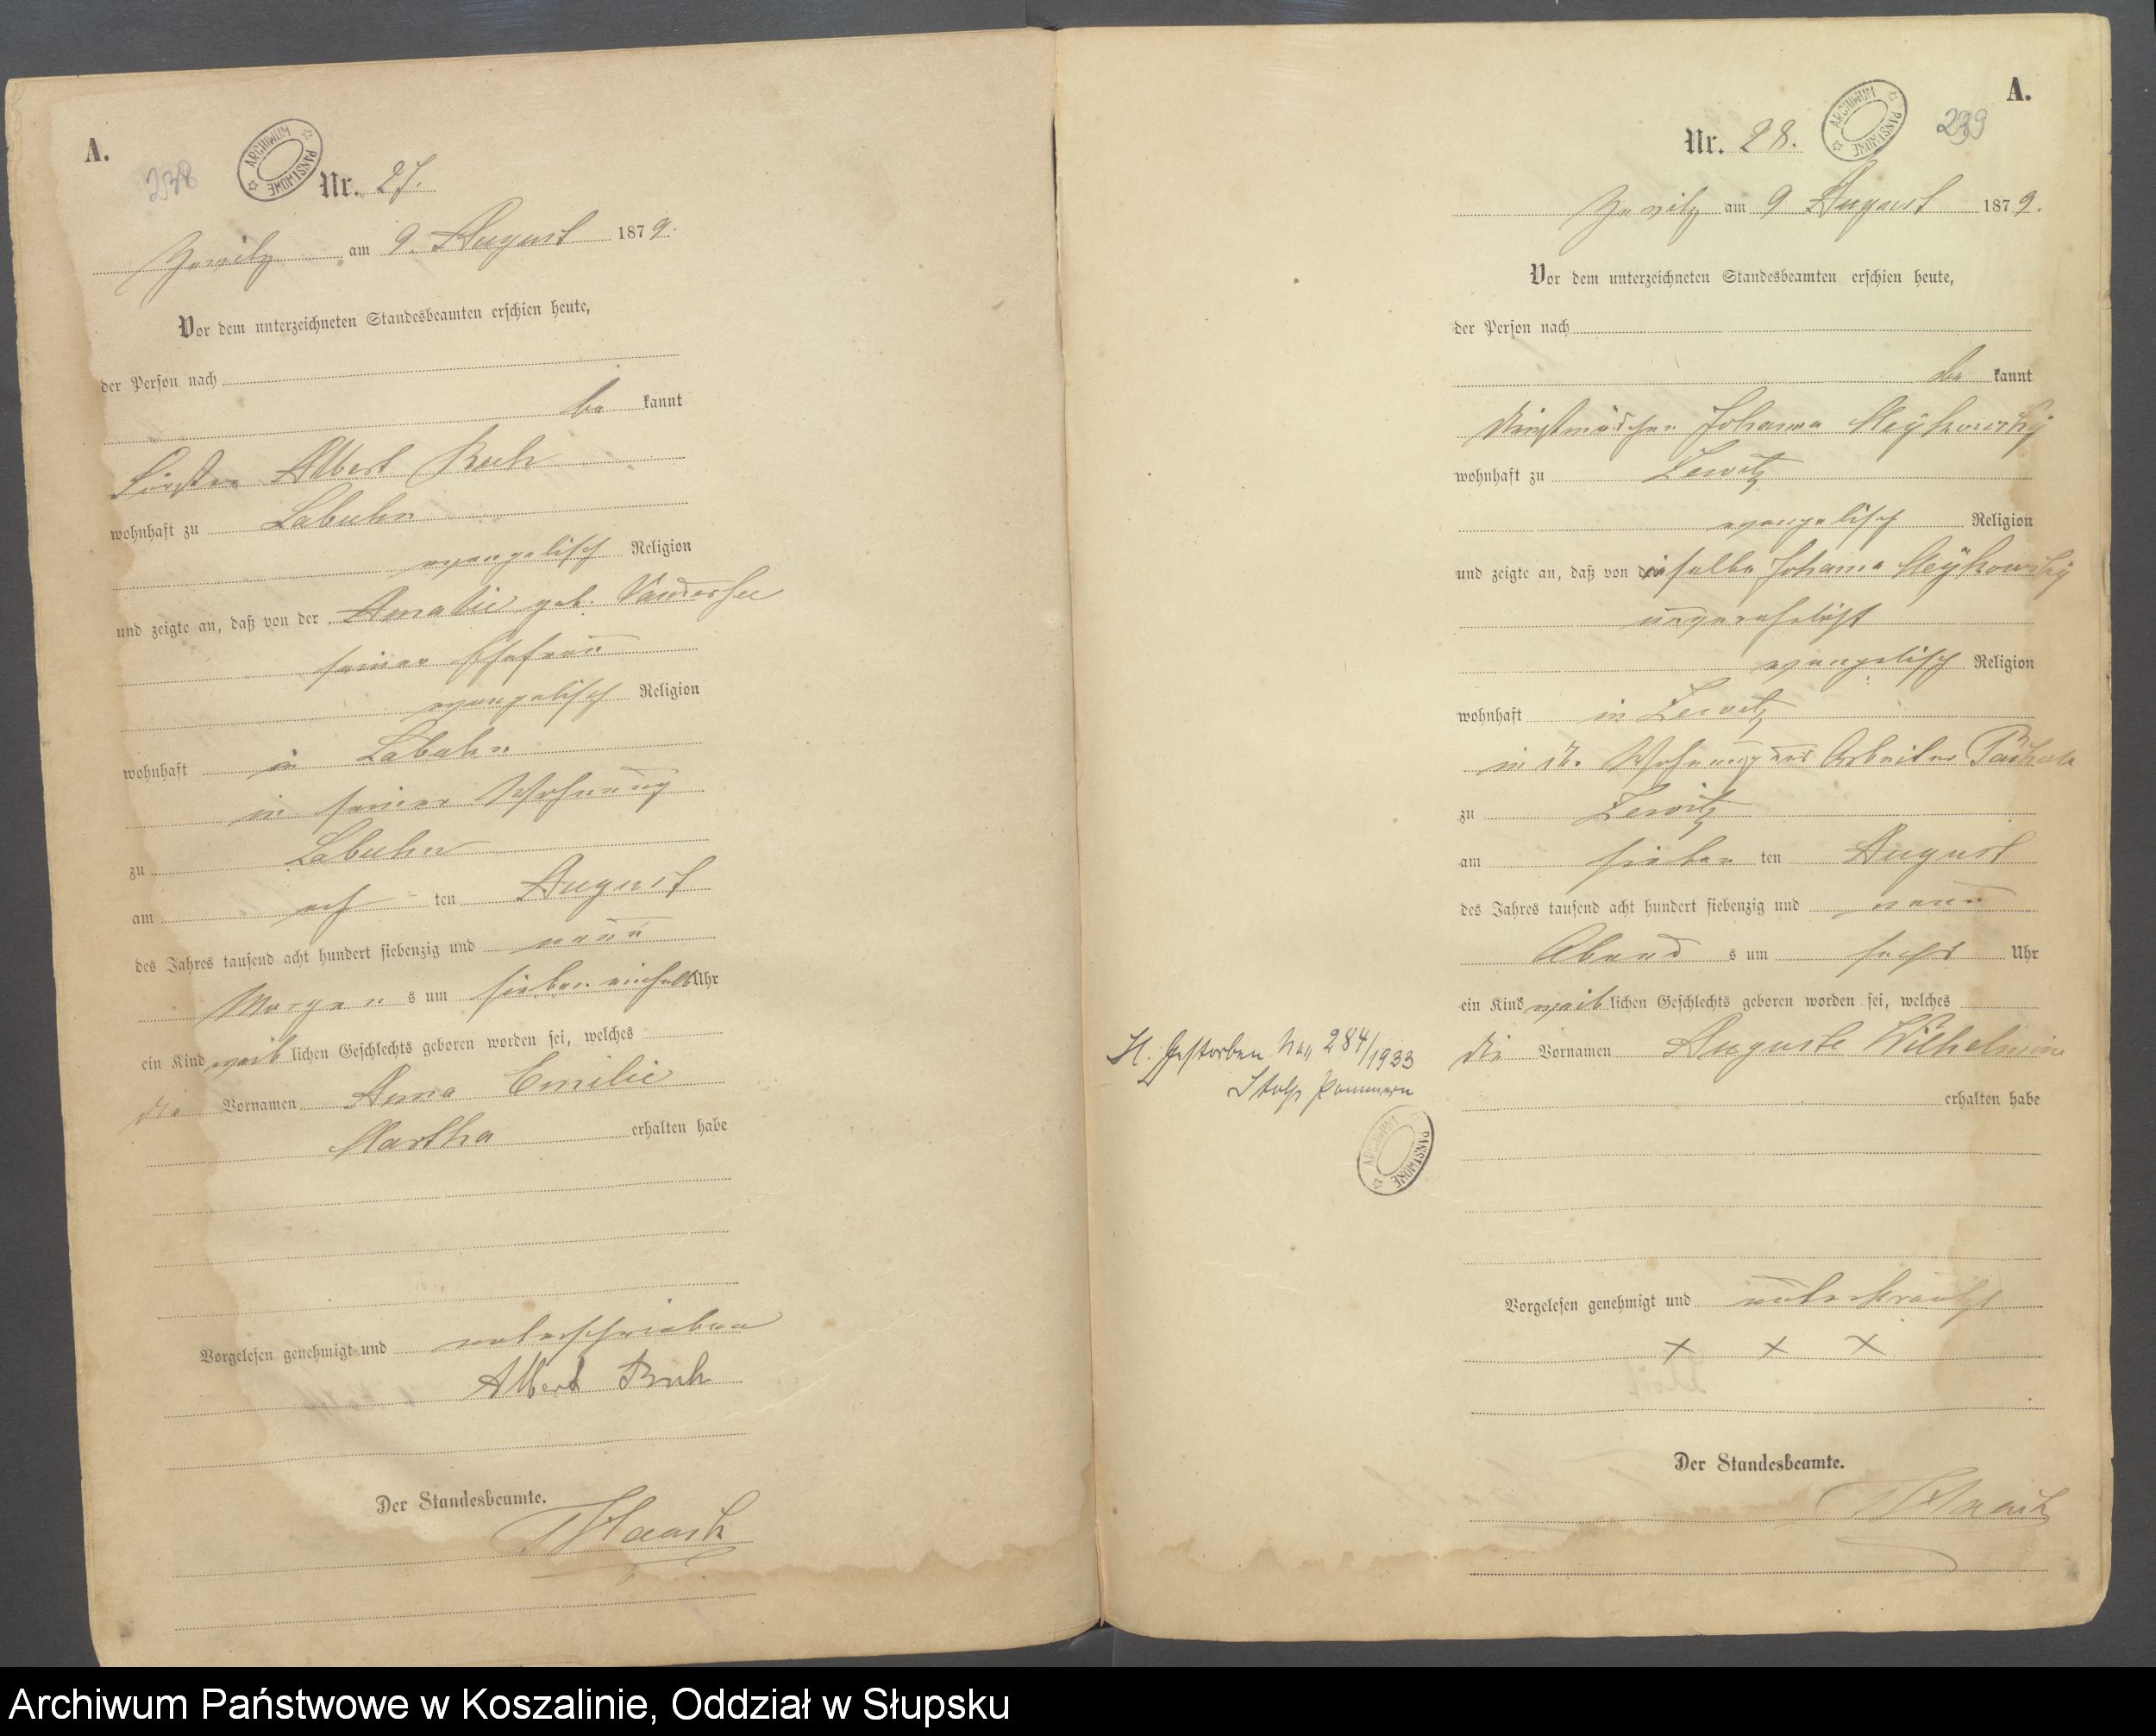 A.
238
ARCHIWUM PAŃSTWOWE
Nr. 27.
am 9. August 1879.
Vor dem unterzeichneten Standesbeamten erschien heute,
der Person nach
be kannt
Förster Albert Ruh
wohnhaft zu Labuhn
evangelisch Religion
und zeigte an, daß von der Amalie geb. Vandersee
seiner Ehefrau
evangelisch Religion
wohnhaft in Labuhn
in seiner Wohnung
zu Labuhn
am ach ten August
des Jahres tausend acht hundert siebenzig und neun
Morgen s um sieben einhalb Uhr
ein Kind weib lichen Geschlechts geboren worden sei, welches
die Vornamen Anna Emilie
Martha erhalten habe
Vorgelesen genehmigt und unterschrieben
Albert Ruh
Der Standesbeamte.
A.
239
ARCHIWUM PAŃSTWOWE
Nr. 28.
am 9 August 1879.
Vor dem unterzeichneten Standesbeamten erschien heute,
der Person nach
be kannt
Dienstmädchen Johanna
wohnhaft zu Zewitz
evangelisch Religion
und zeigte an, daß von derselbe Johanna
unverehelicht
evangelisch Religion
wohnhaft in Zewitz
in der Wohnung des Arbeiter
zu Zewitz
am sieben ten August
des Jahres tausend acht hundert siebenzig und neun
Abend s um sechs Uhr
ein Kind weib lichen Geschlechts geboren worden sei, welches
die Vornamen Auguste Wilhelmine
erhalten habe
Gestorben No 284/1933
Stolp Pommern
ARCHIWUM PAŃSTWOWE
Vorgelesen genehmigt und unterkreuzt
X X X
Der Standesbeamte.
Archiwum Państwowe w Koszalinie, Oddział w Słupsku